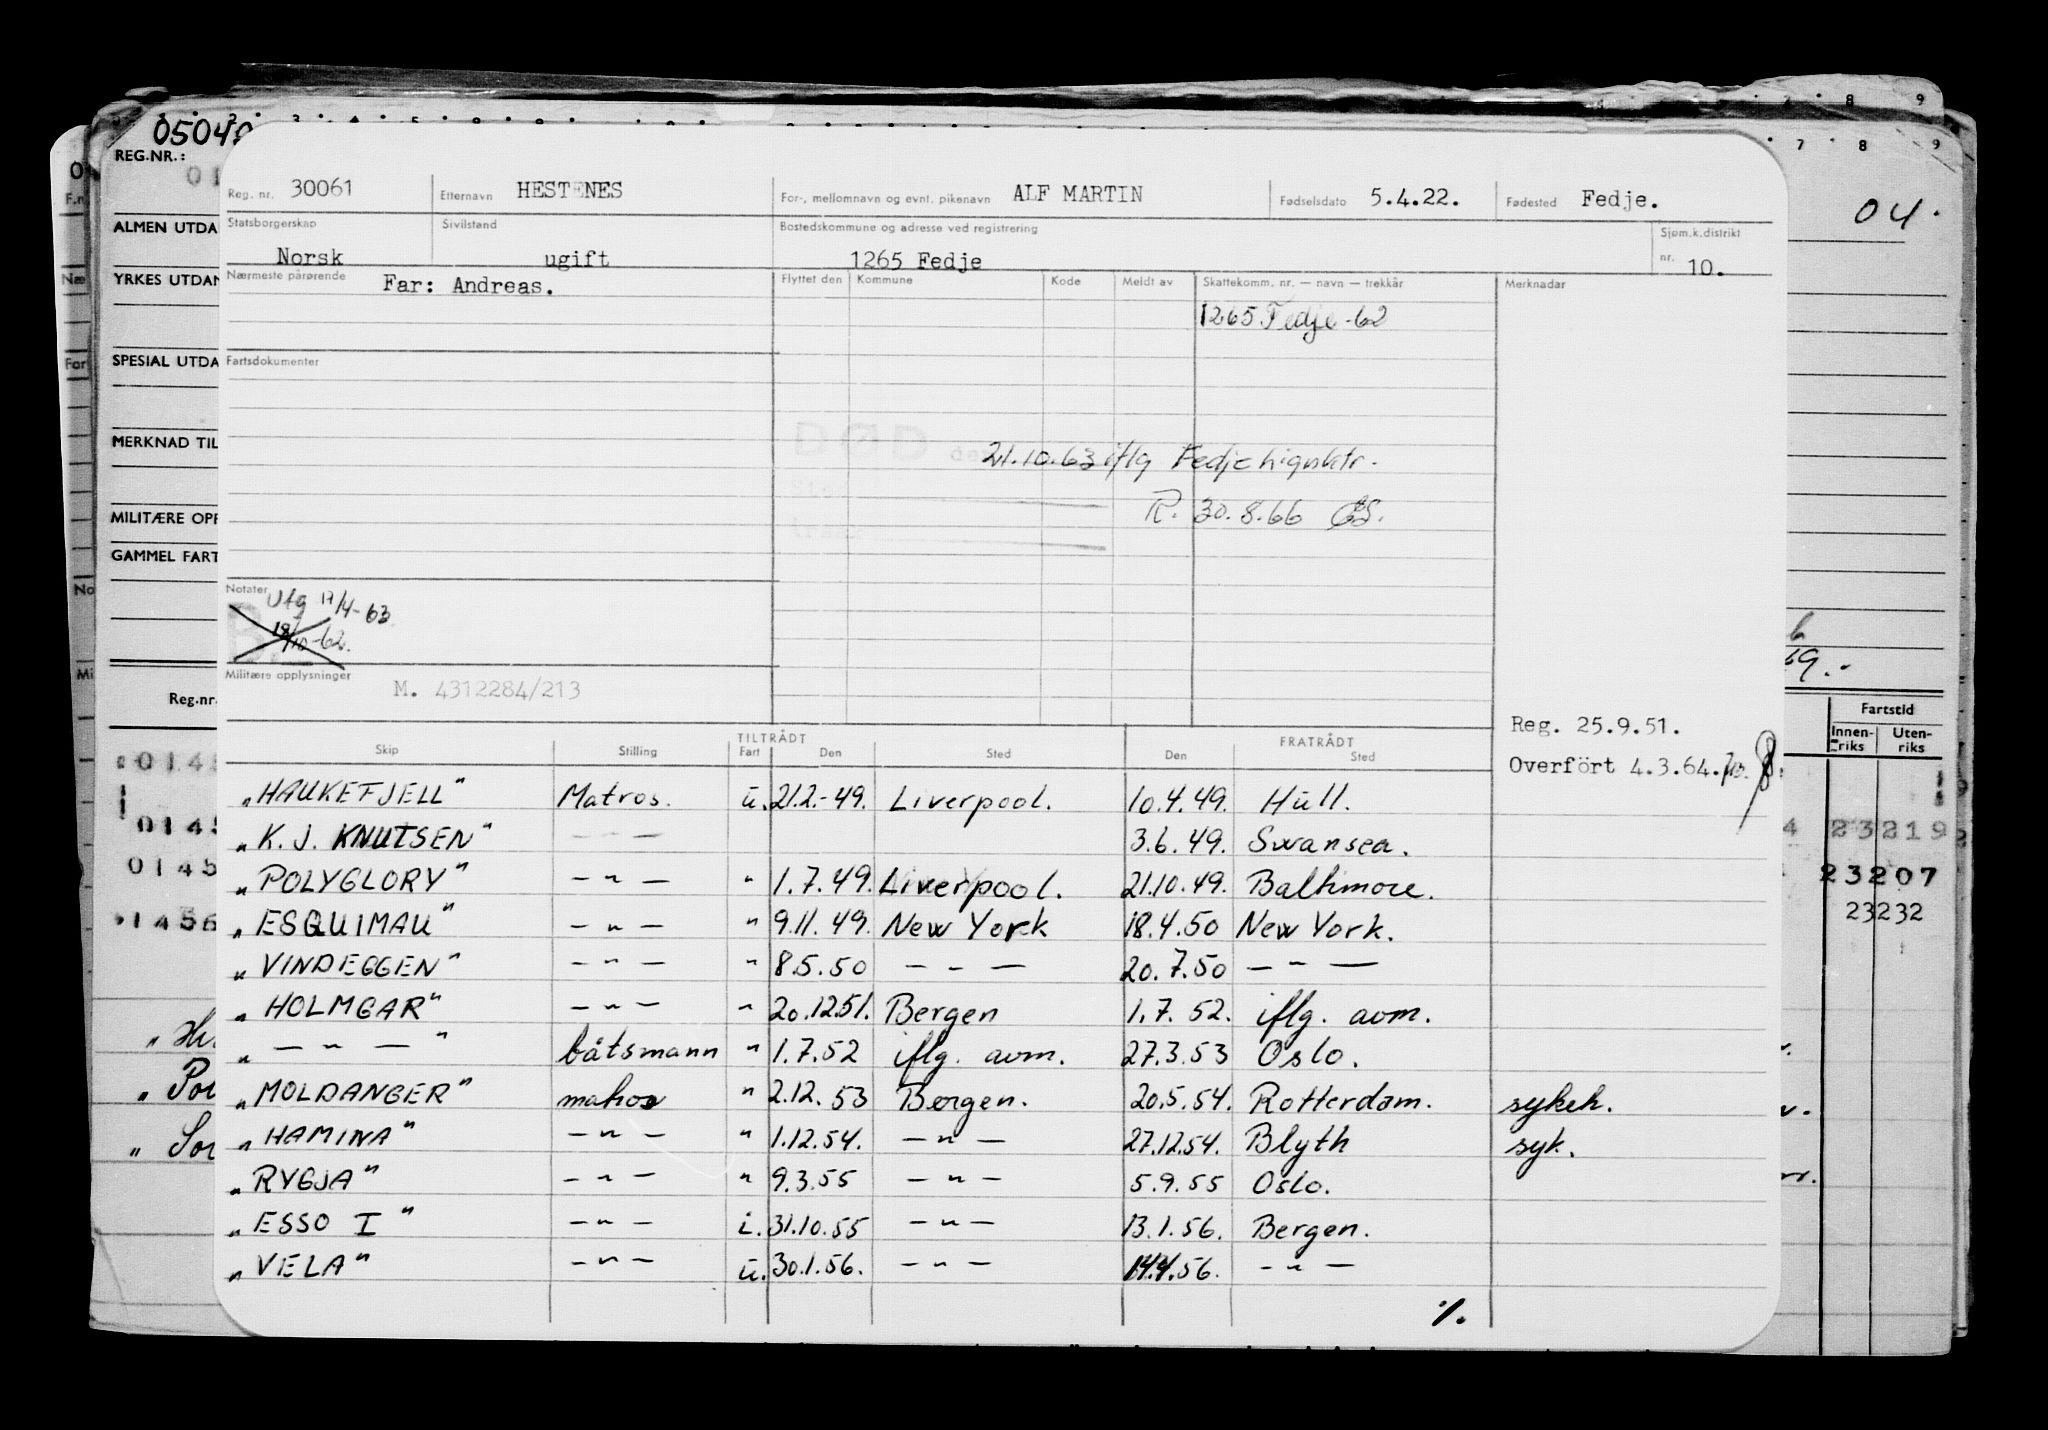 05049
REG.NR.:
Reg. nr. 30061 Etternavn HESTENES For-, mellomnavn og evnt. pikenavn ALF MARTIN Fødselsdato 5.4.22. Fødested Fedje.
04.
ALMEN UTDA
Statsborgerskap Sivilstand Bostedskommune og adresse ved registrering Sjøm.k.distrikt
Norsk ugift 1265 Fedje nr. 10.
YRKES UTDAN
Nærmeste pårørende Far: Andreas. Flyttet den Kommune Kode Meldt av Skattekomm. nr. — navn — trekkår Merknadar
1265 Fedje -62
SPESIAL UTDA
Fartsdokumenter
MERKNAD TIL
DØD den 21.10.63 iflg Fedje lignktr.
MILITÆRE OPP
R. 30.8.66
GAMMEL FART
Notater Utg 17/4-63
18/10-62.
Militære opplysninger M. 4312284/213
Reg.nr.
Reg. 25.9.51.
Overfört 4.3.64.
Fartstid
Innen-riks Uten-riks
TILTRÅDT FRATRÅDT
Skip Stilling Fart Den Sted Den Sted
"HAUKEFJELL" Matros. u. 21.2.-49. Liverpool. 10.4.49. Hull.
"K.J. KNUTSEN" — " — 3.6.49. Swansea.
"POLYGLORY" — " — " 1.7.49. Liverpool. 21.10.49. Baltimore.
"ESQUIMAU" — " — " 9.11.49. New York 18.4.50 New York.
"VINDEGGEN" — " — " 8.5.50 — " — 20.7.50 — " —
"HOLMGAR" — " — " 20.12.51. Bergen 1.7.52. iflg. avm.
" — " — " båtsmann " 1.7.52 iflg. avm. 27.3.53 Oslo.
"MOLDANGER" matros " 2.12.53 Bergen. 20.5.54. Rotterdam. sykeh.
"HAMINA" — " — " 1.12.54. — " — 27.12.54. Blyth syk.
"RYGJA" — " — " 9.3.55 — " — 5.9.55 Oslo.
"ESSO I" — " — i. 31.10.55 — " — 13.1.56. Bergen.
"VELA" — " — u. 30.1.56. — " — 14.4.56. — " —
./.
23219
23207
23232